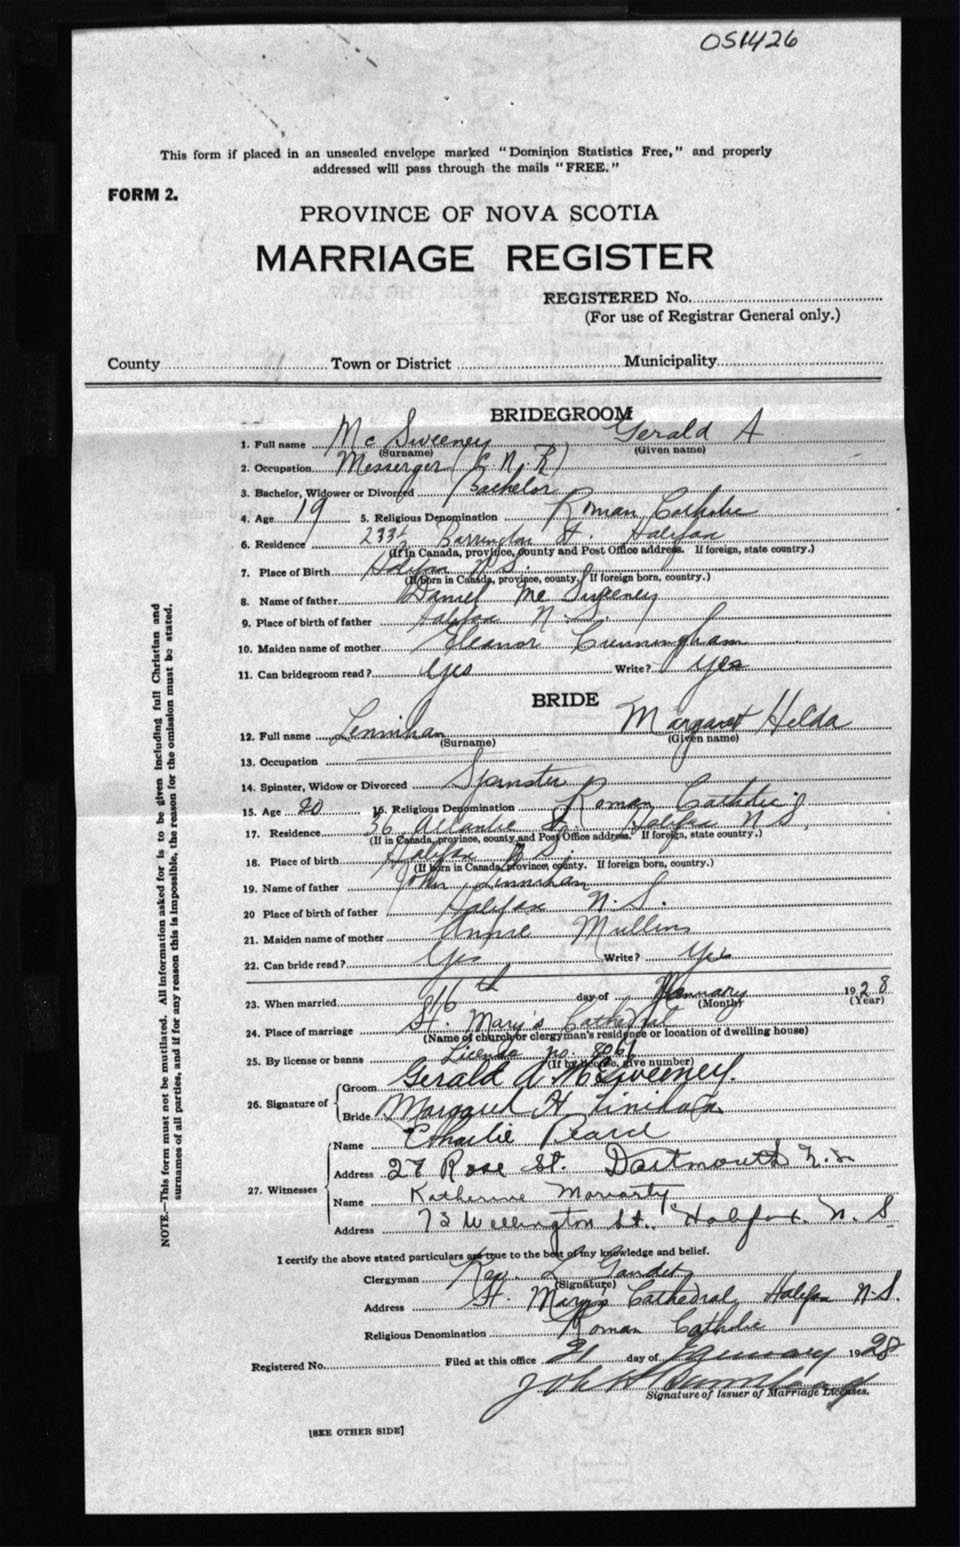 051426
This form if placed in an unsealed envelope marked "Dominion Statistics Free," and properly
addressed will pass through the mails "FREE."
FORM 2.
PROVINCE OF NOVA SCOTIA
MARRIAGE REGISTER
REGISTERED No.
(For use of Registrar General only.)
County Town or District Municipality
BRIDEGROOM
1. Full name McSweeney Gerald A
(Surname) (Given name)
2. Occupation Messenger (C.N.R)
3. Bachelor, Widower or Divorced Bachelor
4. Age 19 5. Religious Denomination Roman Catholic
6. Residence Barrington St. Halifax
(If in Canada, province, county and Post Office address. If foreign, state country.)
7. Place of Birth Halifax N.S.
(If born in Canada, province, county. If foreign born, country.)
8. Name of father Daniel McSweeney
9. Place of birth of father Halifax N.S.
10. Maiden name of mother Eleanor Cunningham
11. Can bridegroom read? Yes Write? Yes
BRIDE
12. Full name Lenihan Margaret Hilda
(Surname) (Given name)
13. Occupation
14. Spinster, Widow or Divorced Spinster
15. Age 20 16. Religious Denomination Roman Catholic
17. Residence 56 Atlantic St. Halifax N.S.
(If in Canada, province, county and Post Office address. If foreign, state country.)
18. Place of birth Halifax N.S.
(If born in Canada, province, county. If foreign born, country.)
19. Name of father John
20 Place of birth of father Halifax N.S.
21. Maiden name of mother Annie Mullins
22. Can bride read? Yes Write? Yes
23. When married 16th day of January 1928
(Month) (Year)
24. Place of marriage St. Mary's Cathedral
(Name of church or clergyman's residence or location of dwelling house)
25. By license or banns License no.
(If by license, give number)
26. Signature of
Groom Gerald A McSweeney.
Bride Margaret H
27. Witnesses
Name Charlie Beard
Address 27 Rose St. Dartmouth N.S
Name Katherine Moriarty
Address 73 Wellington St., Halifax. N.S
I certify the above stated particulars are true to the best of my knowledge and belief.
Clergyman Rev. L Gaudet
(Signature)
Address St. Mary's Cathedral, Halifax N.S.
Religious Denomination Roman Catholic
Registered No. Filed at this office 21 day of January 1928
Signature of Issuer of Marriage Licenses.
[SEE OTHER SIDE]
NOTE.—This form must not be mutilated. All information asked for is to be given including full Christian and
surnames of all parties, and if for any reason this is impossible, the reason for the omission must be stated.